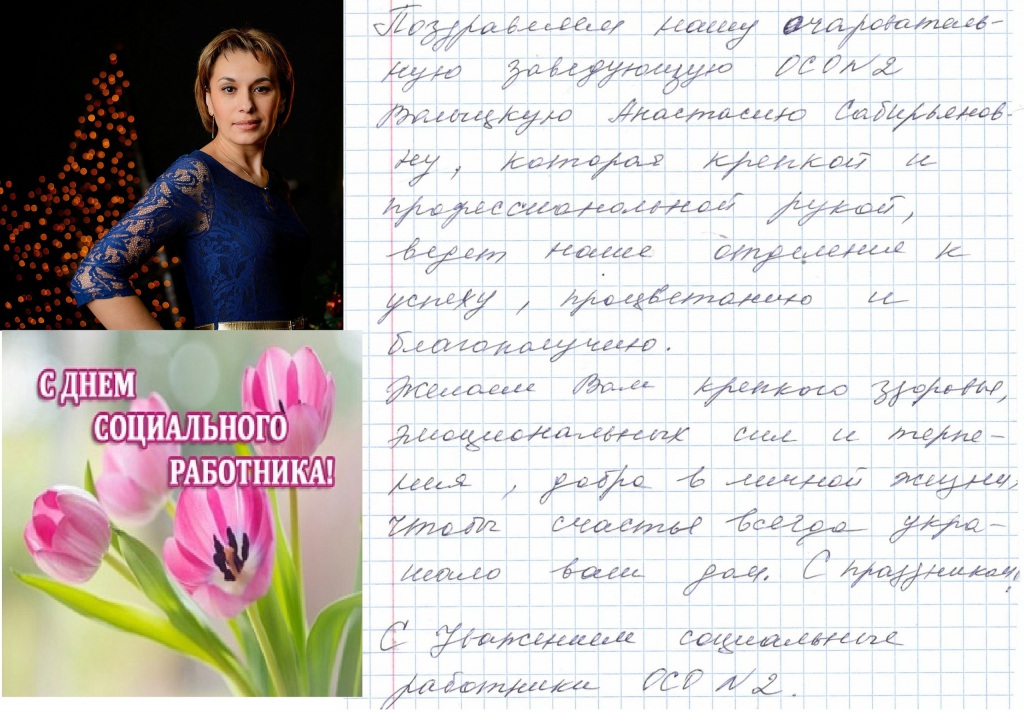 Поздравляем нашу очарователь-
ную заведующую ОСО №2
Валыцкую Анастасию Сабирьянов-
ну, которая крепкой и
профессиональной рукой,
ведет наше отделение к
успеху, процветанию и
благополучию.
Желаем Вам крепкого здоровья,
эмоциональных сил и терпе-
ния, добра в личной жизни,
чтобы счастье всегда укра-
шало ваш дом. С праздником!
С Уважением социальные
работники ОСО №2.
С ДНЕМ
СОЦИАЛЬНОГО
РАБОТНИКА!